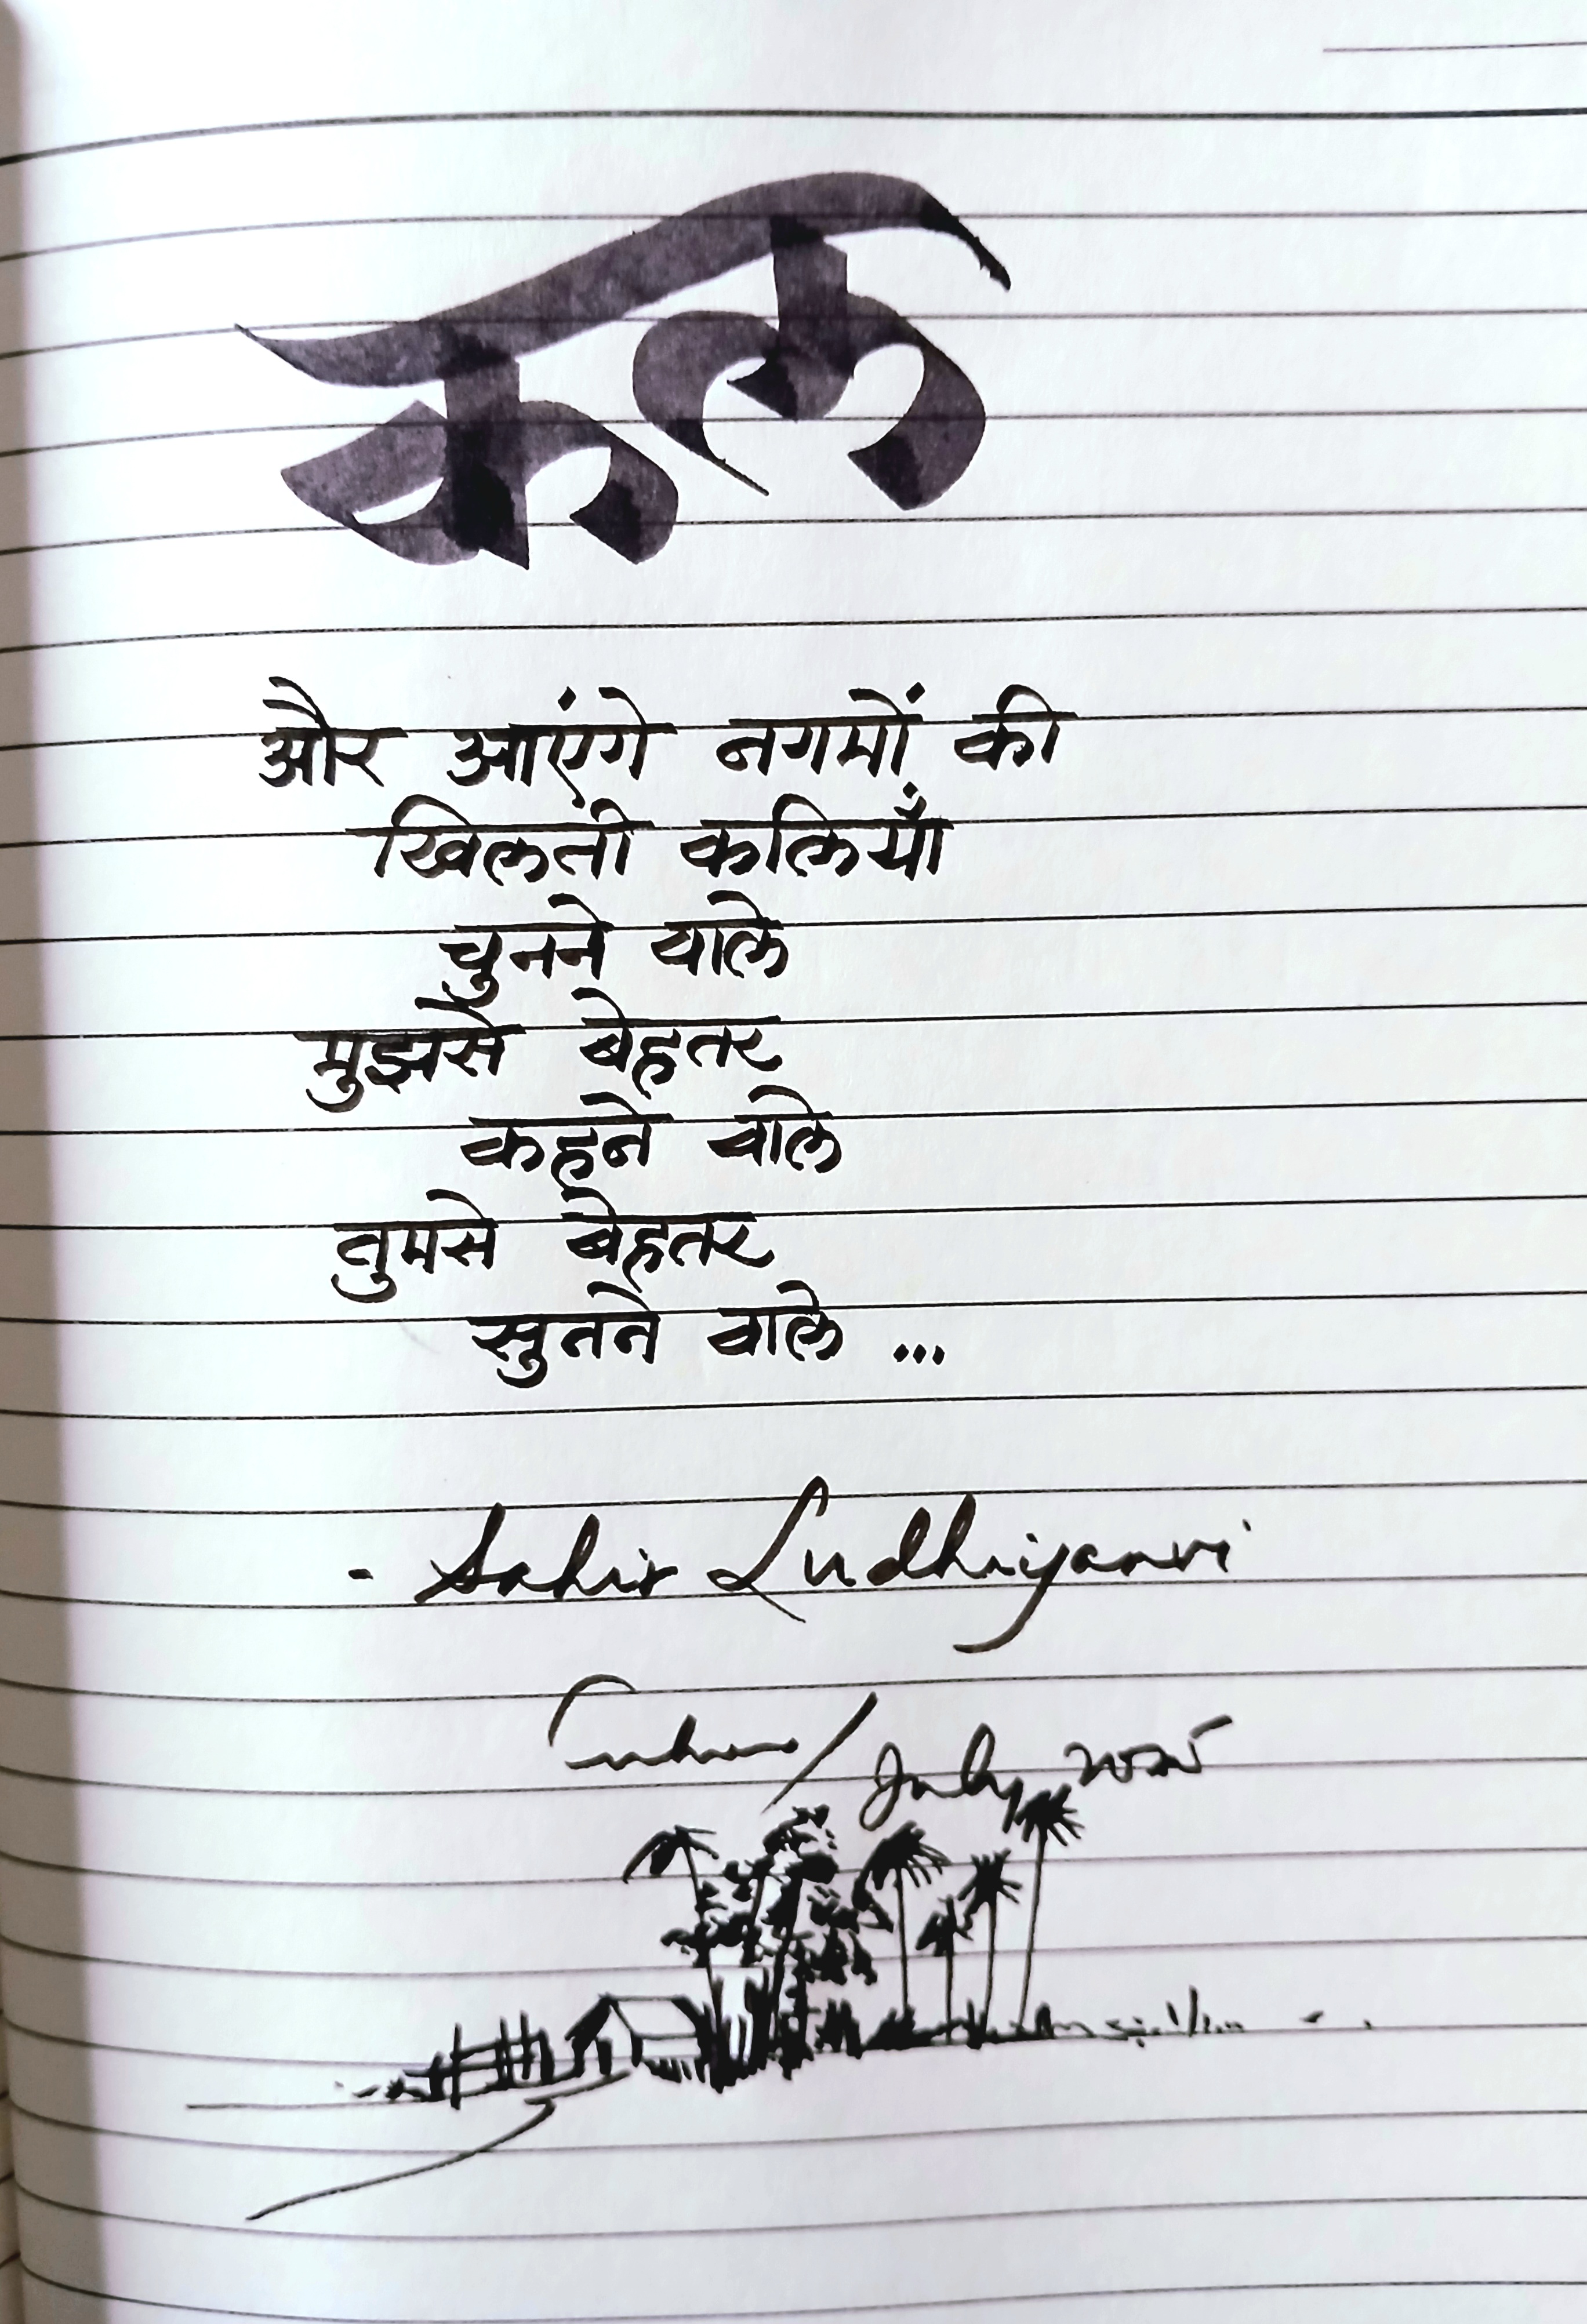 कल
और आएंगे नगमों की
खिलती कलियाँ
चुनने वाले
मुझसे बेहतर
कहने वाले
तुमसे बेहतर
सुनने वाले ...
- Sahir Ludhiyanvi
July